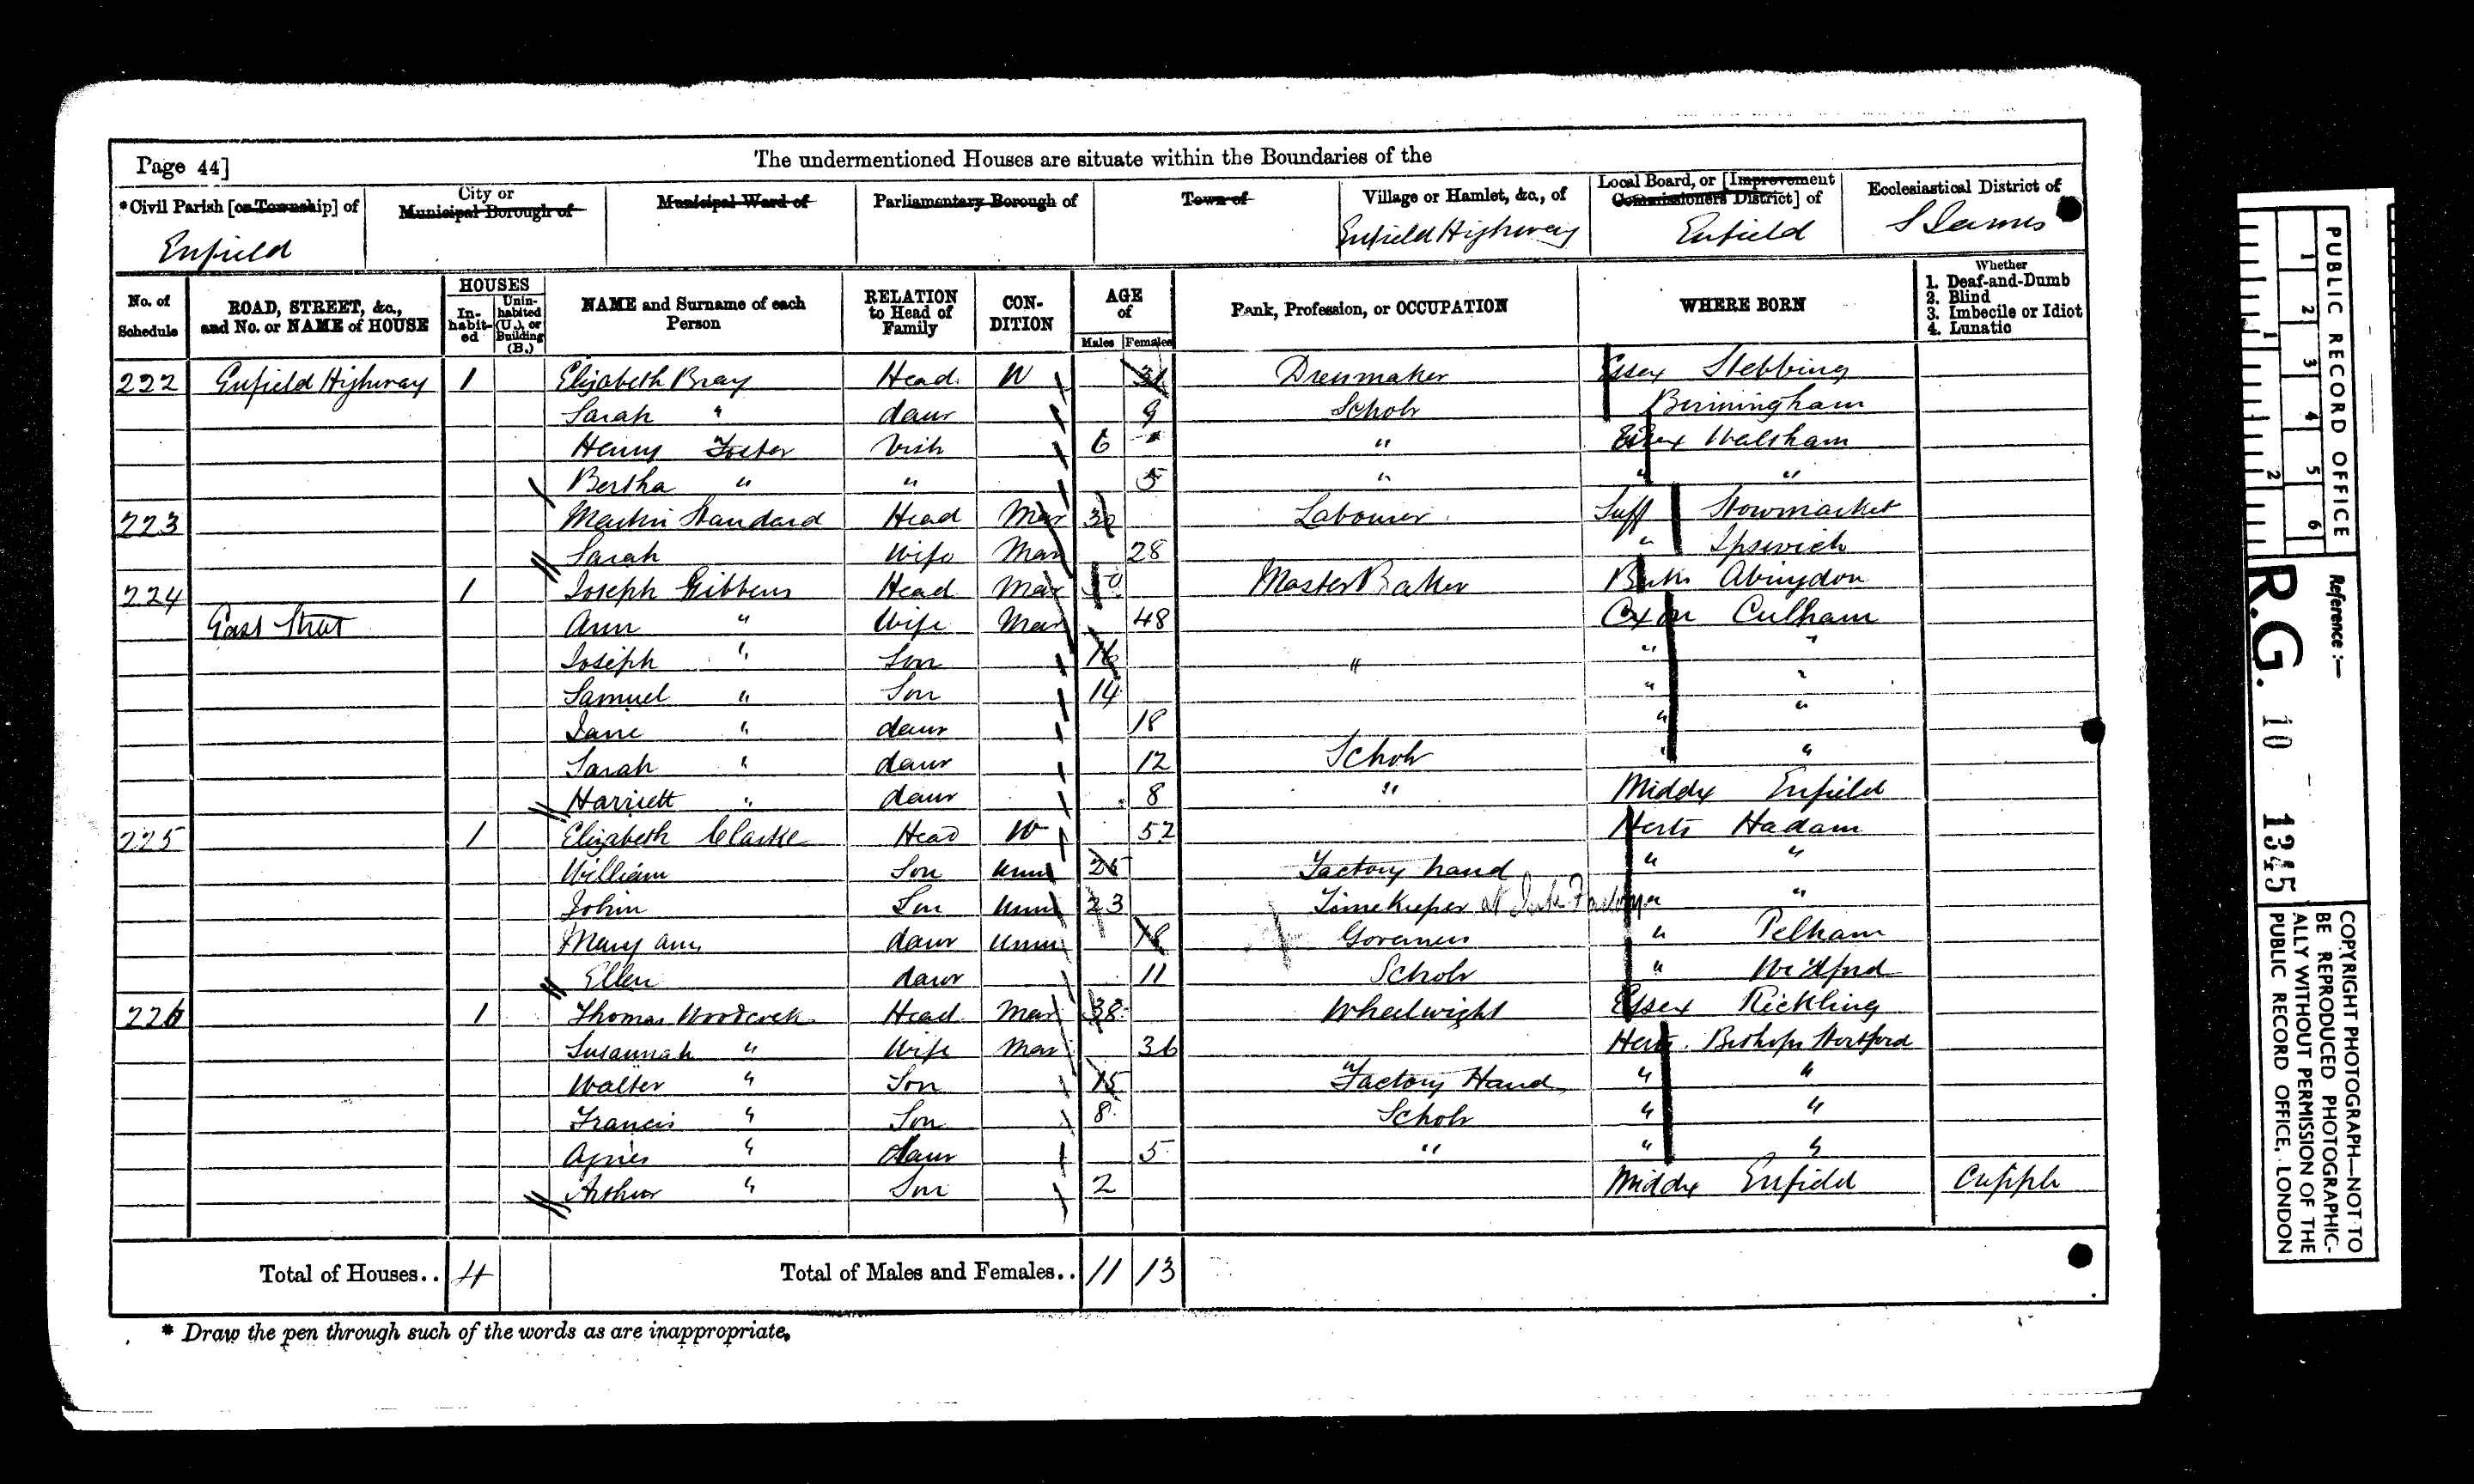 Page 44]
The undermentioned Houses are situate within the Boundaries of the
*Civil Parish [or Township] of
City or Municipal Borough of
Municipal Ward of
Parliamentary Borough of
Town of
Village or Hamlet, &c., of
Local Board, or [Improvement Commissioners District] of
Ecclesiastical District of
Enfield Enfield Highway Enfield St James
No. of Schedule
ROAD, STREET, &c., and No. or NAME of HOUSE
HOUSES
Inhabited
Uninhabited (U.), or Building (B.)
NAME and Surname of each Person
RELATION to Head of Family
CONDITION
AGE of
Males Females
Rank, Profession, or OCCUPATION
WHERE BORN
Whether
1. Deaf-and-Dumb
2. Blind
3. Imbecile or Idiot
4. Lunatic
222 Enfield Highway 1 Elizabeth Bray Head W 31 Dressmaker Essex Stebbing
Sarah " daur 9 Scholr Birmingham
Henry Foster Visitr 6 " Essex Walsham
Bertha " " 5 " " "
223 Martin Standard Head Mar 30 Labourer Suff Stowmarket
Sarah Wife Mar 28 " Ipswich
224 1 Joseph Gibbens Head Mar 50 Master Baker Berks Abingdon
East Street Ann " Wife Mar 48 Oxon Culham
Joseph " Son 16 " " "
Samuel " Son 14 " "
Jane " daur 18 " "
Sarah " daur 12 Scholr " "
Harriett " daur 8 " Middx Enfield
225 1 Elizabeth Clarke Head W 52 Herts Hadam
William Son Unm 25 Factory hand " "
John Son Unm 23 Timekeeper at Factory " "
Mary Ann daur Unm 18 Governess " Pelham
Ellen daur 11 Scholr " Widford
226 1 Thomas Woodcock Head Mar 38 Wheelwright Essex Rickling
Susannah " Wife Mar 36 Herts Bishops Stortford
Walter " Son 15 Factory Hand " "
Francis " Son 8 Scholr " "
Agnes " daur 5 " " "
Arthur " Son 2 Middx Enfield Cripple
Total of Houses.. 4 Total of Males and Females.. 11 13
* Draw the pen through such of the words as are inappropriate.
PUBLIC RECORD OFFICE
1 2 3 4 5 6
1 2
Reference:—
R.G. 10 1345
COPYRIGHT PHOTOGRAPH—NOT TO BE REPRODUCED PHOTOGRAPHICALLY WITHOUT PERMISSION OF THE PUBLIC RECORD OFFICE, LONDON